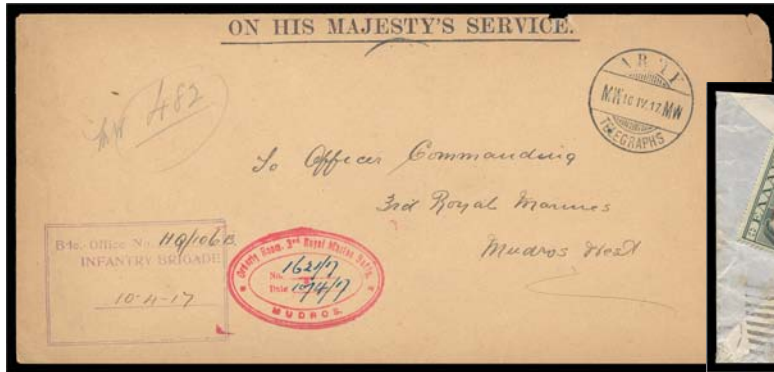 ON HIS MAJESTY'S SERVICE.
ARMY
MW 10 IV. 17. MW
TELEGRAPHS
482
To Officer Commanding
3rd Royal Marines
Mudros West
Bde. Office No. HQ/106B.
INFANTRY BRIGADE
10-4-17
Orderly Room, 3rd Royal Marine Battn.
No. 1621/7
Date 10/4/17
MUDROS.